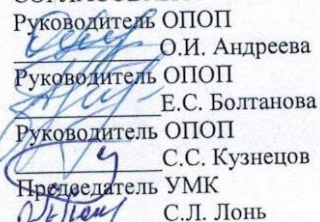 Руководитель ОПОП
О.И. Андреева
Руководитель ОПОП
Е.С. Болтанова
Руководитель ОПОП
С.С. Кузнецов
Председатель УМК
С.Л. Лонь